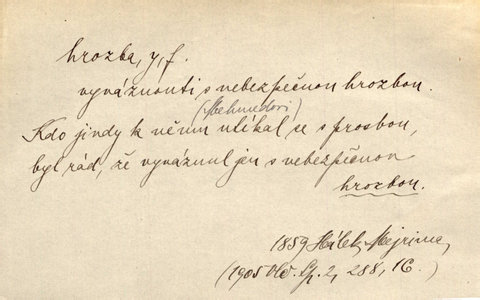 hrozba, y, f.
vyváznouti s nebezpečnou hrozbou.
(Mehmedovi)
Kdo jindy k němu utíkal se s prosbou,
byl rád, že vyváznul jen s nebezpečnou
hrozbou.
1859 Hálek, Mejrima,
(1905 Sp. 2, 288, 16.)